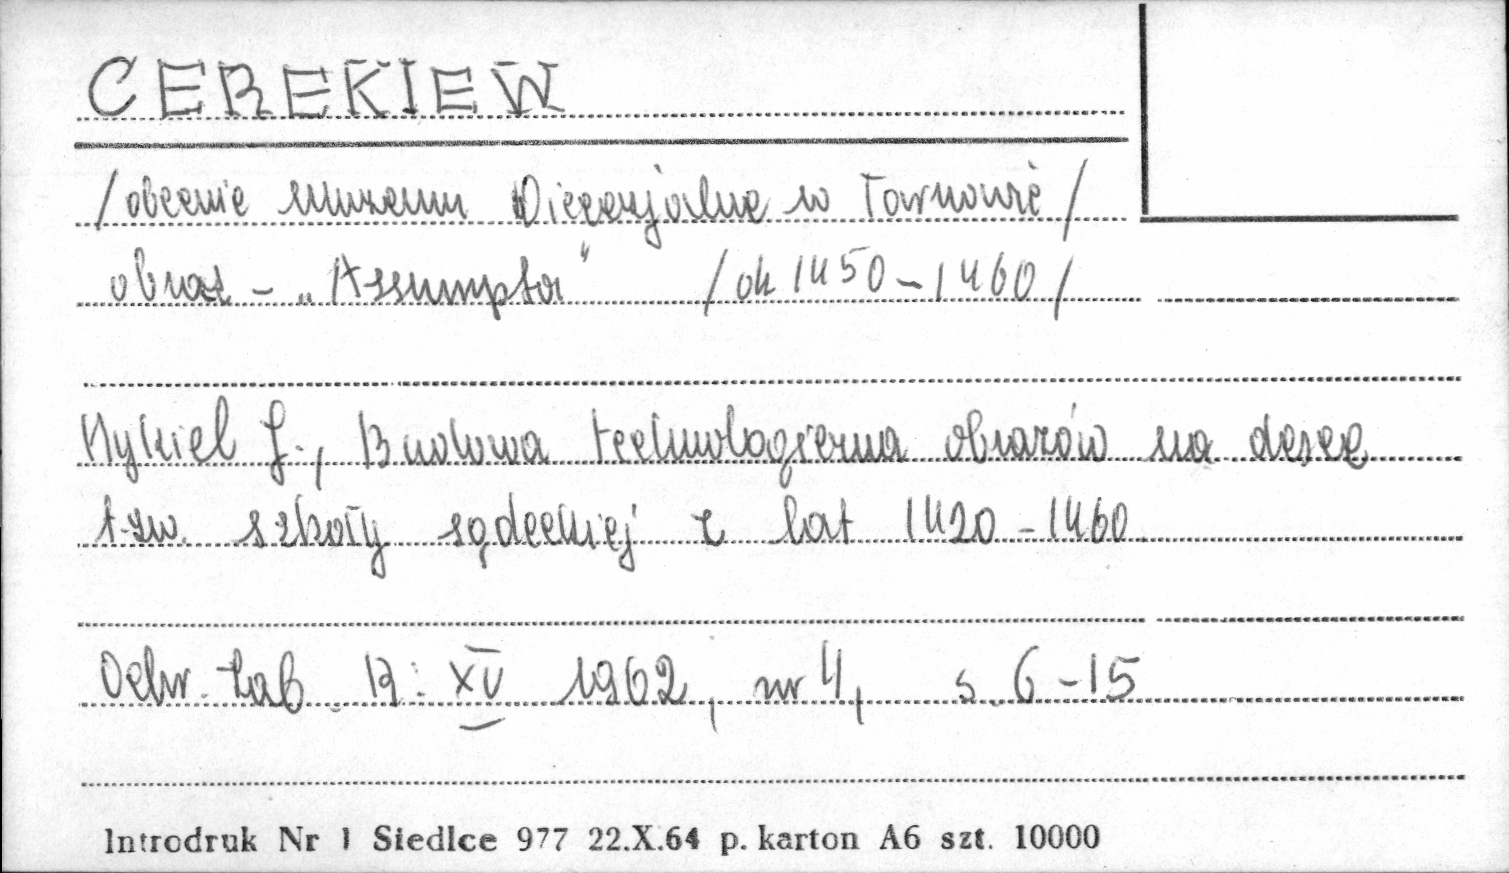 CEREKIEW
/obecnie Muzeum Diecezjalne w Tarnowie/
obraz - „Assumpta" /ok 1450-1460/
Mykiel J., Budowa technologiczna obrazów na desce
t.zw. szkoły sądeckiej z lat 1420-1460
Ochr. Zab. R: XV 1962, nr 4, s. 6-15
Introdruk Nr 1 Siedlce 977 22.X.64 p. karton A6 szt. 10000